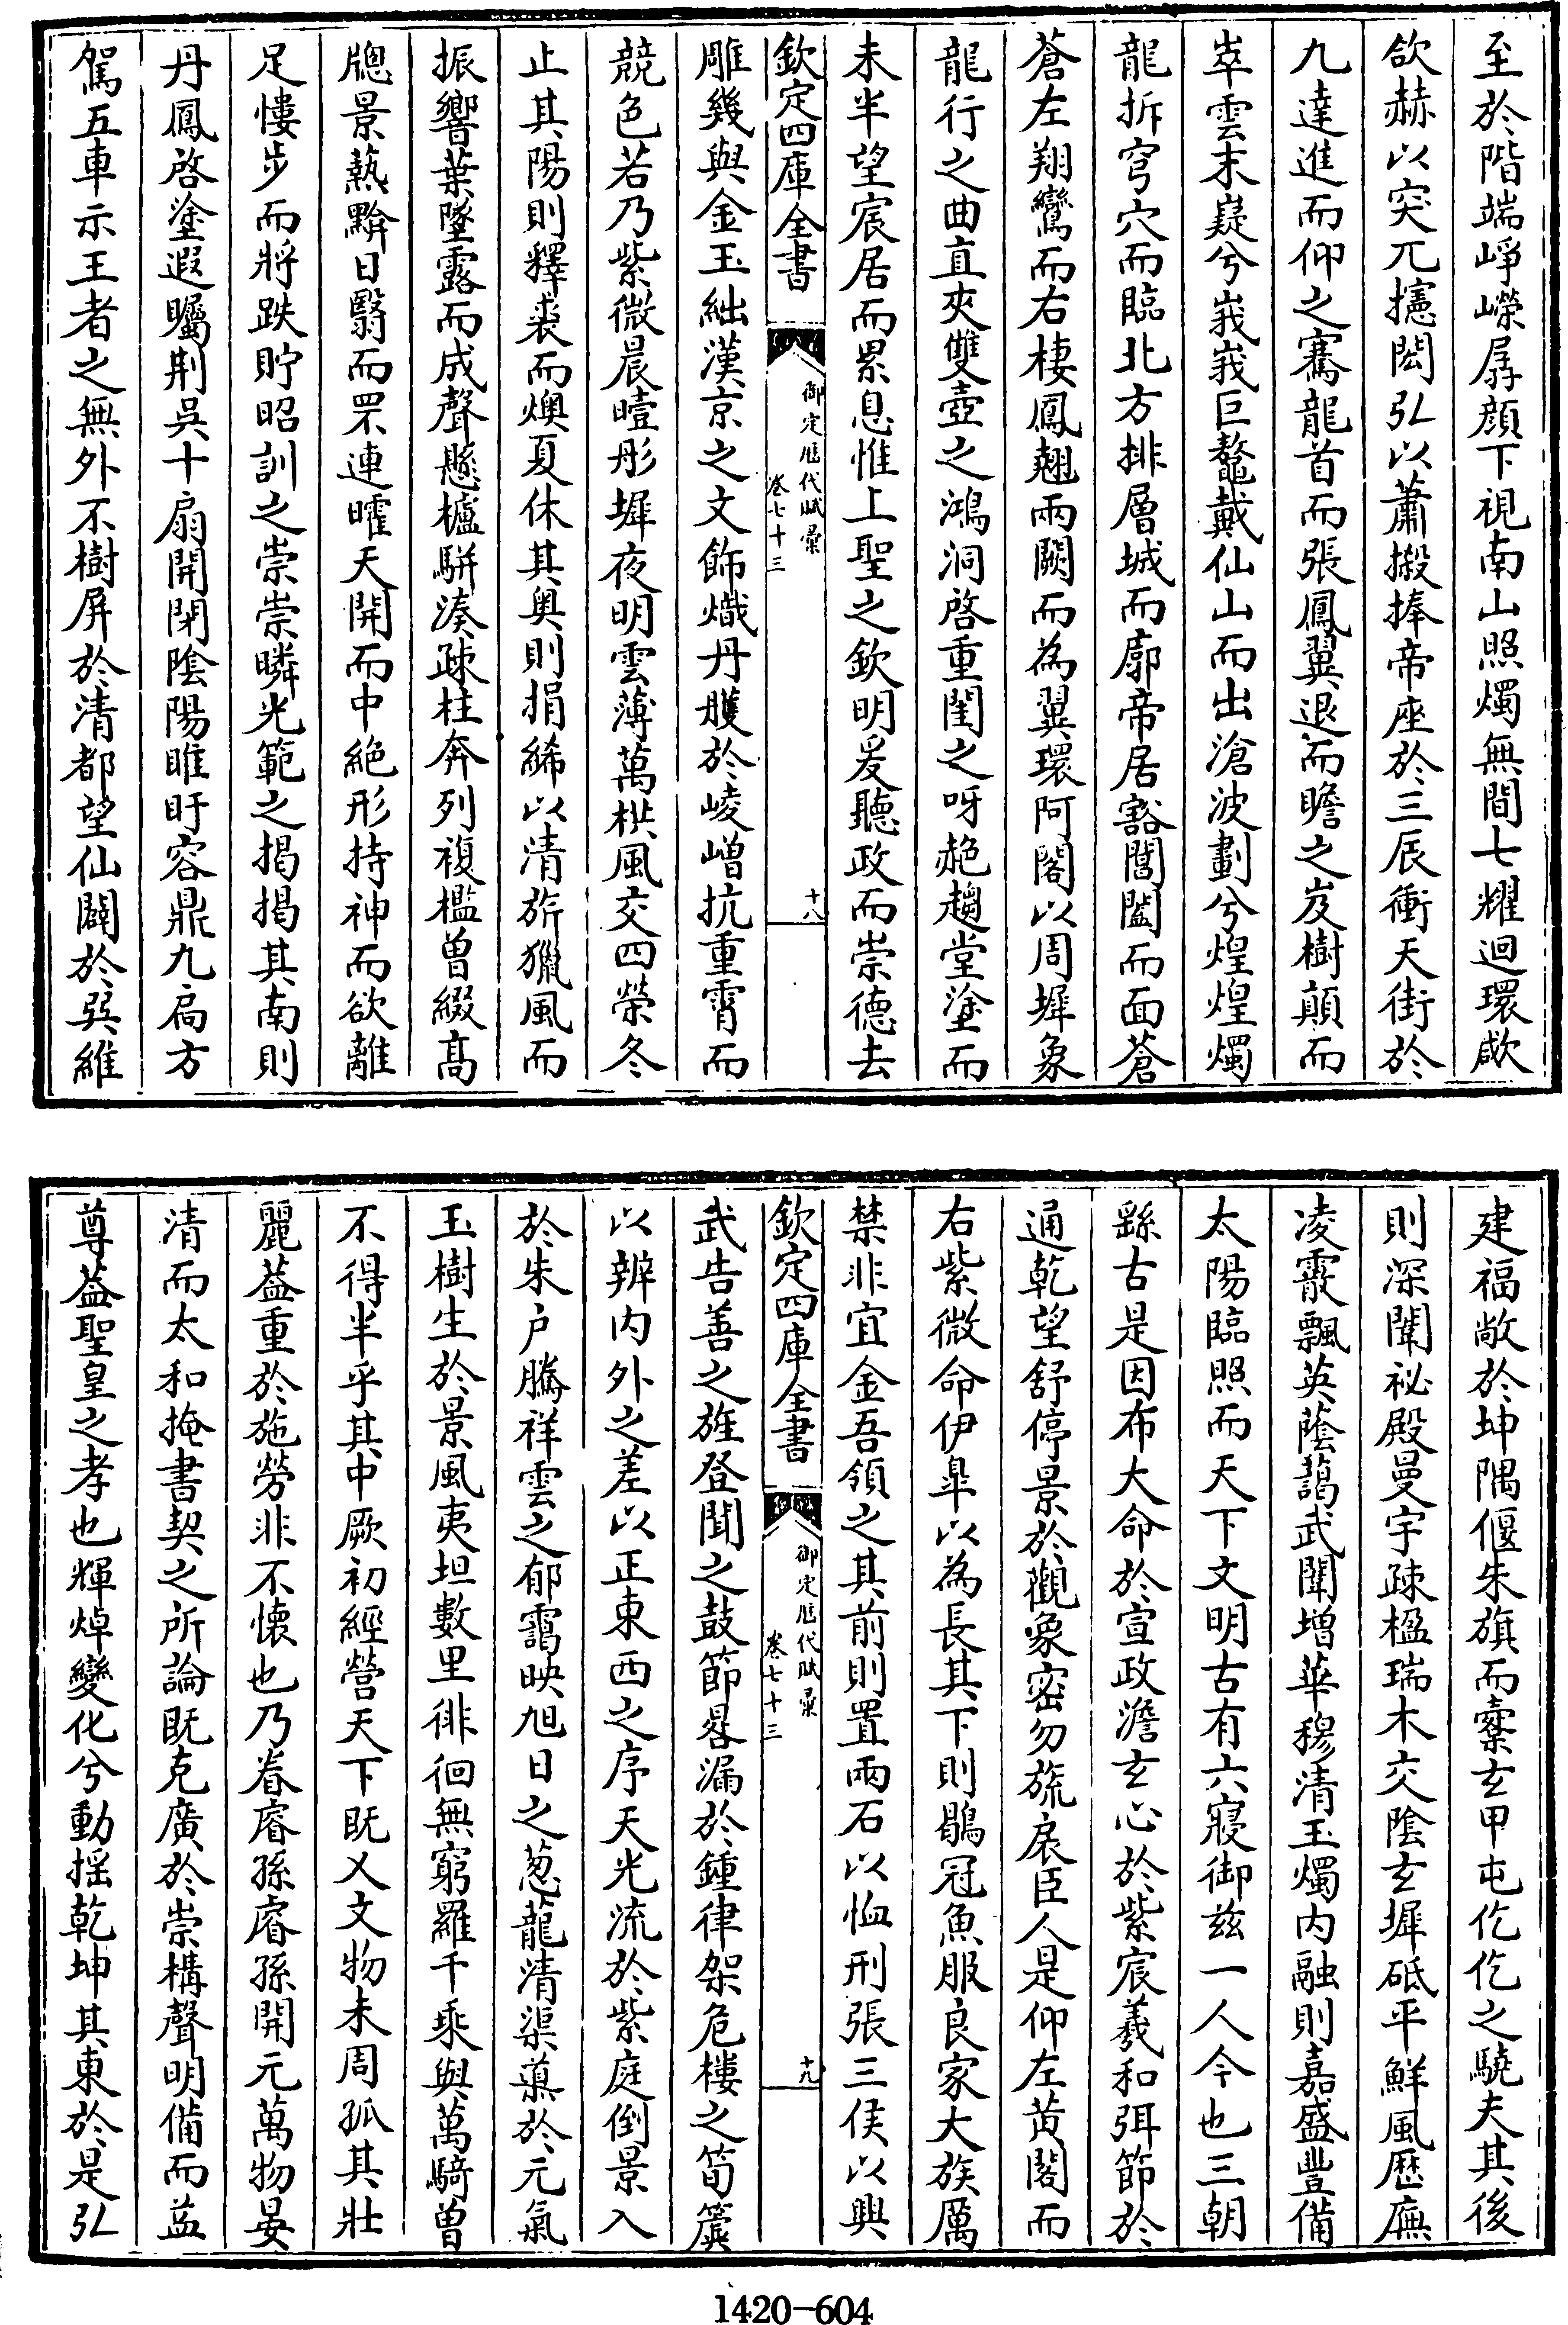 至於階端崢嶸孱顔下視南山照燭無間七耀迴環歘
欱赫以突兀攇閎弘以蕭搬捧帝座於三辰衝天街於
九達進而仰之騫龍首而張鳳翼退而瞻之岌樹顛而
崒雲末嶷兮峩峩巨鼇戴仙山而出滄波劃兮煌煌燭
龍拆穹穴而臨北方排層城而廓帝居豁閶闔而面蒼
蒼左翔鸞而右棲鳳翹兩闕而為翼環阿閣以周墀象
龍行之曲直夾雙壺之鴻洞啓重閨之呀赩趨堂塗而
未半望宸居而累息惟上聖之欽明爰聽政而崇德去
欽定四庫全書
御定歴代賦彙
卷七十三
十八
雕幾與金玉絀漢京之文飾熾丹雘於崚嶒抗重霄而
競色若乃紫微晨曀彤墀夜明雲薄萬栱風交四榮冬
止其陽則釋裘而燠夏休其奥則捐絺以清旂獵風而
振響葉墜露而成聲懸櫨駢湊疎柱奔列複檻曽綴髙
牕景熱黭日翳而罘連曜天開而中絶形持神而欲離
足慺步而將跌貯昭訓之崇崇瞵光範之揭揭其南則
丹鳳啓塗遐矚荆吳十扇開閉陰陽睢盱容鼎九扃方
駕五車示王者之無外不樹屏於清都望仙闢於巽維
建福敞於坤隅偃朱旗而櫜玄甲屯仡仡之驍夫其後
則深闈祕殿曼宇疎楹瑞木交陰玄墀砥平鮮風歴廡
凌霰飄英蔭藹武闈増華穆清玉燭内融則嘉盛豐備
太陽臨照而天下文明古有六寢御兹一人今也三朝
繇古是因布大命於宣政澹玄心於紫宸羲和弭節於
通乾望舒停景於觀象密勿旒扆臣人是仰左黄閣而
右紫微命伊臯以為長其下則鶡冠魚服良家大族厲
禁非宜金吾領之其前則置兩石以恤刑張三侯以興
欽定四庫全書
御定歴代賦彙
卷七十三
十九
武告善之旌登聞之鼓節晷漏於鍾律架危樓之筍簴
以辨内外之差以正東西之序天光流於紫庭倒景入
於朱戶騰祥雲之郁靄映旭日之葱蘢清渠蕅於元氣
玉樹生於景風夷坦數里徘徊無窮羅千乘與萬騎曽
不得半乎其中厥初經營天下既乂文物未周孤其壯
麗葢重於施勞非不懐也乃眷睿孫睿孫開元萬物晏
清而太和掩書契之所論既克廣於崇構聲明備而益
尊葢聖皇之孝也輝焯變化兮動揺乾坤其東於是弘
1420-604